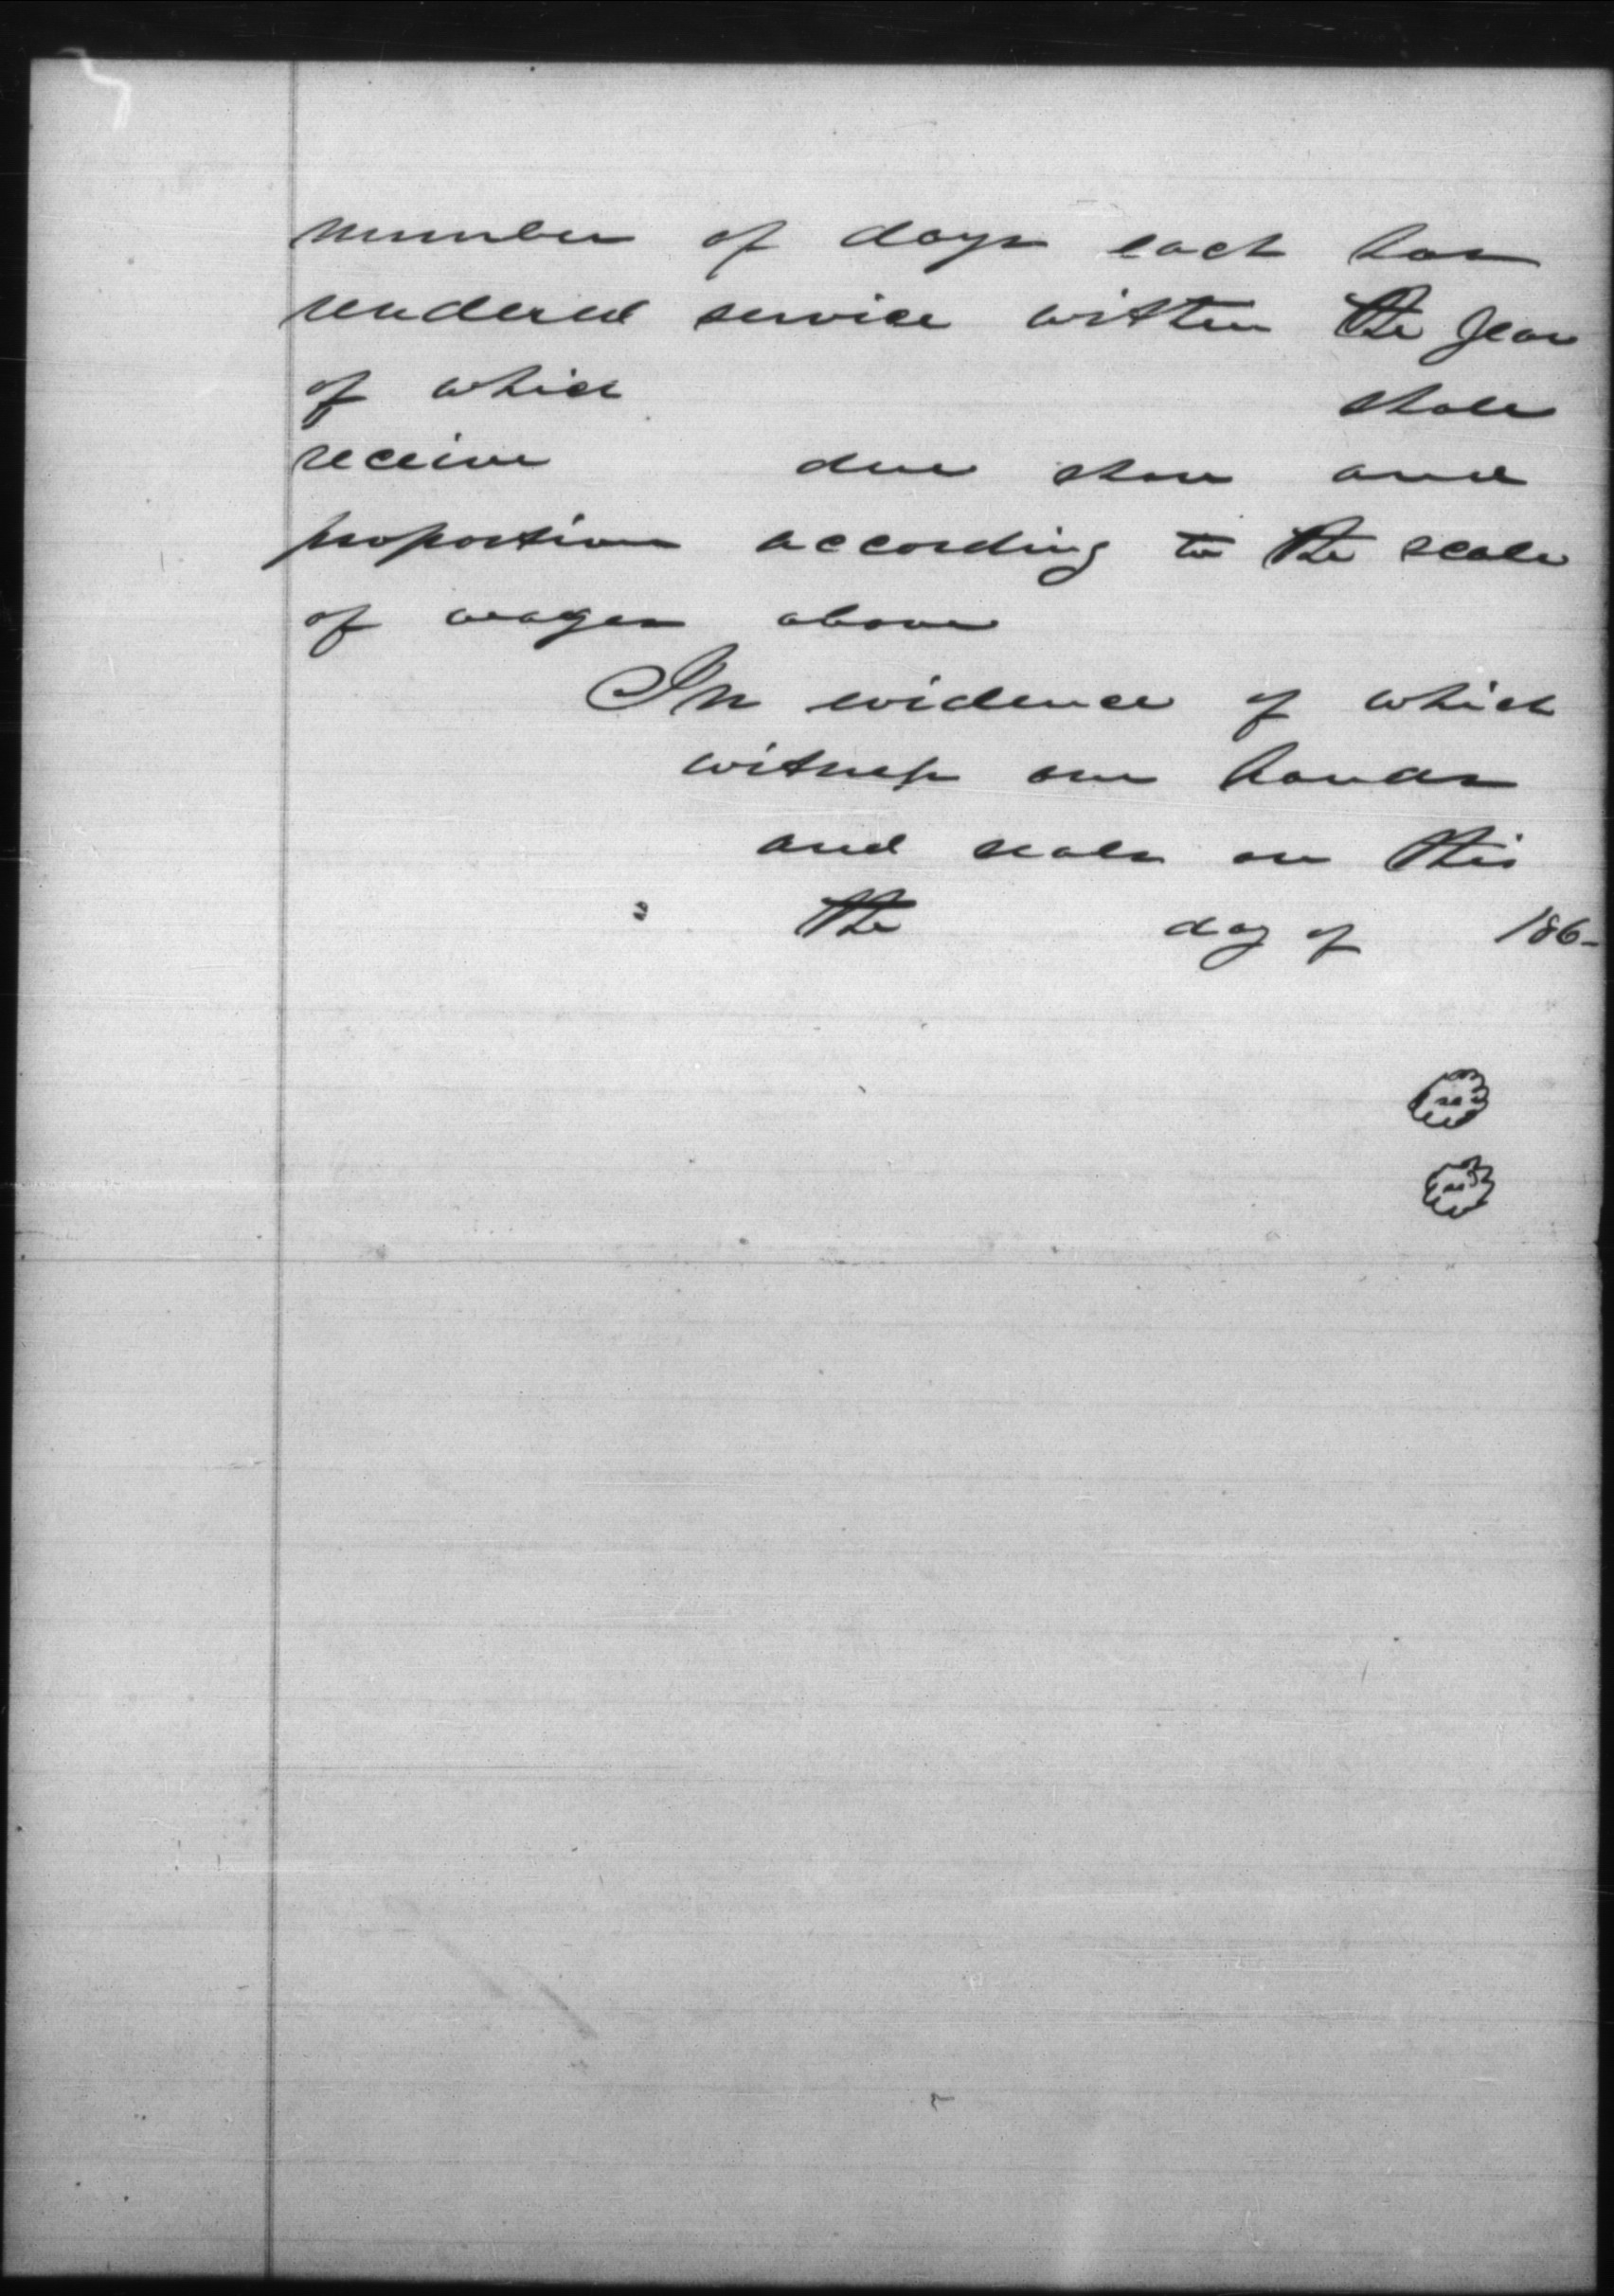 number of days each has
rendered service within the year
of which shall
receive due share and
proportion according to the scale
of wages above
In evidence of which
witness our hands
and seals on this
the day of 186-